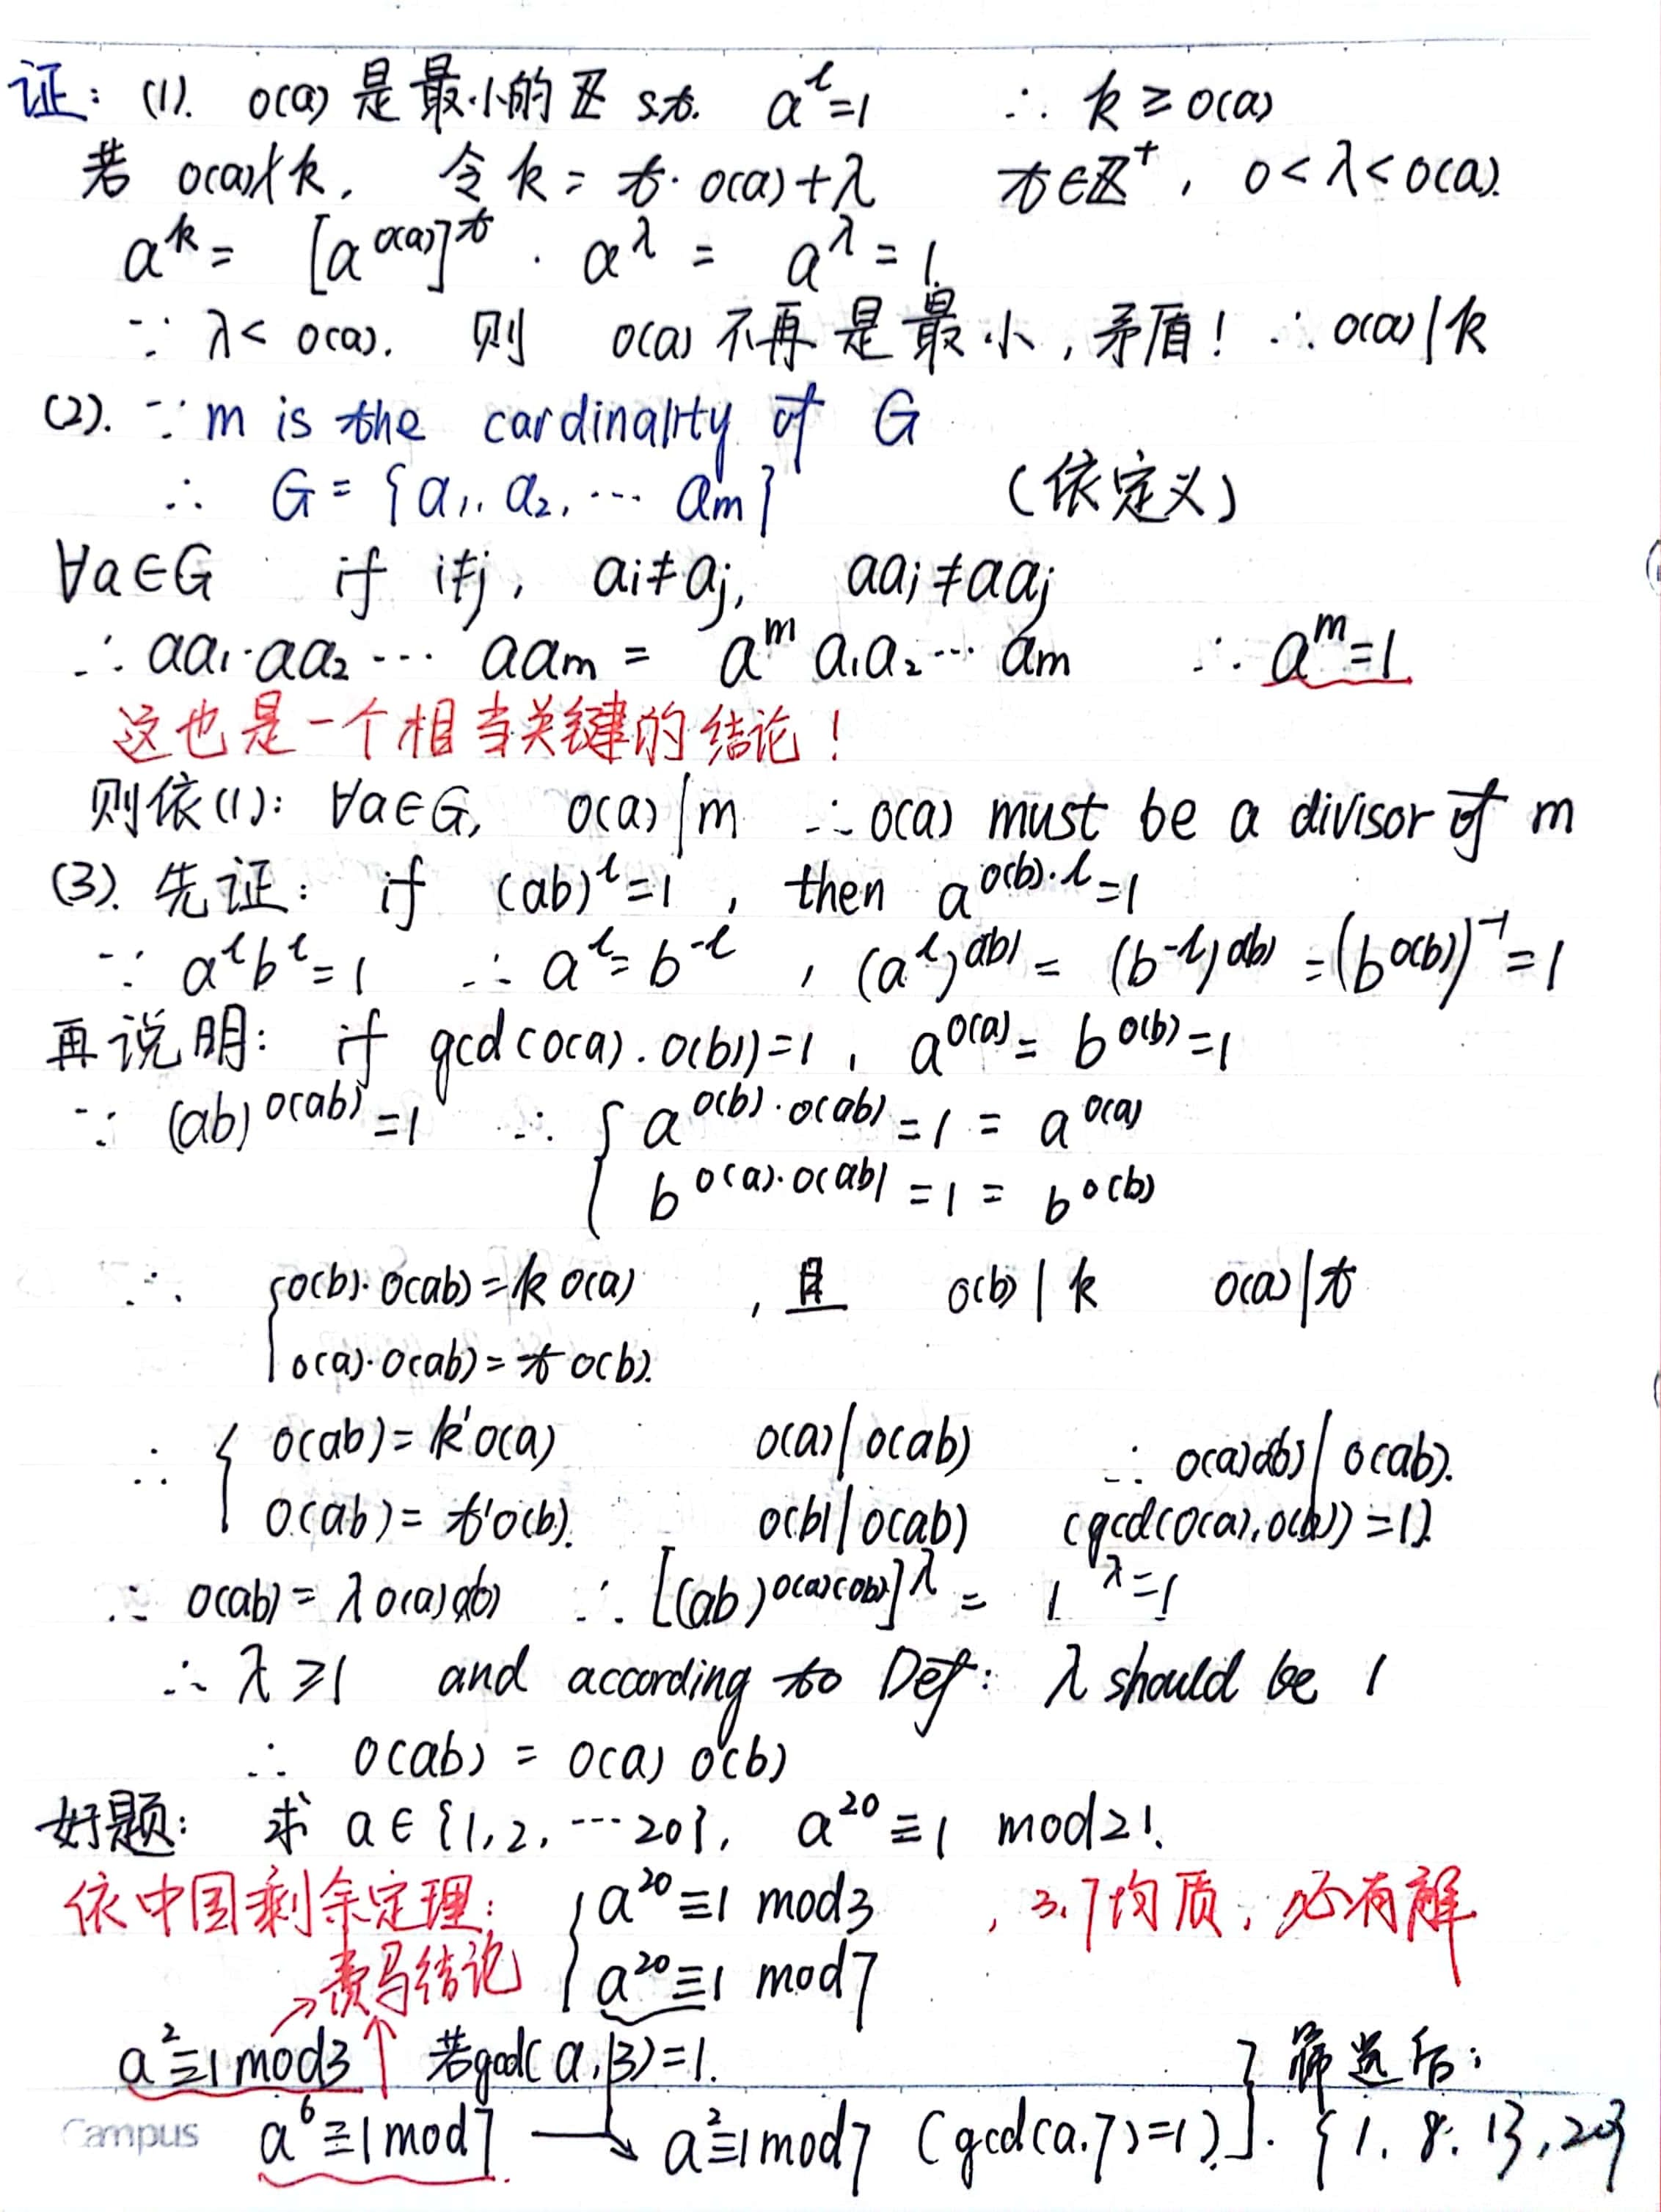 证: (1). o(a) 是最小的 ℤ s.t. a^l=1 ∴ k ≥ o(a)
若 o(a)∤k, 令 k = t·o(a)+λ t∈ℤ⁺, 0<λ<o(a).
a^k = [a^{o(a)}]^t · a^λ = a^λ = 1.
∵ λ< o(a). 则 o(a) 不再是最小, 矛盾! ∴ o(a)|k
(2). ∵ m is the cardinality of G
∴ G = {a₁, a₂, ··· aₘ} (依定义)
∀a∈G if i≠j, aᵢ≠aⱼ, aaᵢ≠aaⱼ
∴ aa₁·aa₂ ··· aaₘ = a^m a₁a₂··· aₘ ∴ a^m=1
这也是一个相当关键的结论!
则依(1): ∀a∈G, o(a)|m ∴ o(a) must be a divisor of m
(3). 先证: if (ab)^l=1, then a^{o(b)·l}=1
∵ a^l b^l=1 ∴ a^l=b^{-l}, (a^l)^{o(b)} = (b^{-l})^{o(b)} = (b^{o(b)})^{-l}=1
再说明: if gcd(o(a).o(b))=1, a^{o(a)}= b^{o(b)}=1
∵ (ab)^{o(ab)}=1 ∴ { a^{o(b)·o(ab)}=1= a^{o(a)}
b^{o(a)·o(ab)}=1= b^{o(b)}
∴ { o(b)·o(ab)=k o(a) , 且 o(b)|k o(a)|t
o(a)·o(ab)=t o(b).
∴ { o(ab)=k'o(a) o(a)|o(ab) ∴ o(a)o(b)|o(ab).
o(ab)=t'o(b). o(b)|o(ab) (gcd(o(a),o(b))=1).
∴ o(ab)=λo(a)o(b) ∴ [(ab)^{o(a)o(b)}]^λ = 1^λ=1
∴ λ≥1 and according to Def: λ should be 1
∴ o(ab) = o(a) o(b)
好题: 求 a∈{1,2,···20}, a^{20}≡1 mod21.
依中国剩余定理: { a^{20}≡1 mod3 , 3.7均质, 必有解
费马结论 a^{20}≡1 mod7
a²≡1mod3 ↑ 若gcd(a,3)=1. } 筛选后:
a⁶≡1mod7 → a²≡1mod7 (gcd(a.7)=1). {1. 8. 13, 20}
Campus